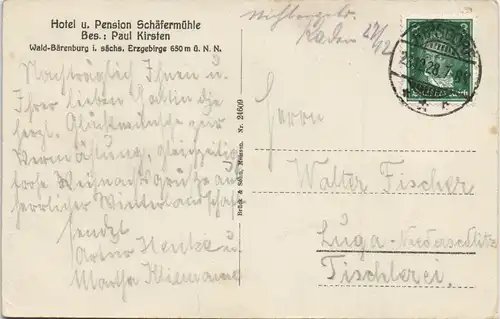 Hotel u. Pension Schäfermühle
Bes.: Paul Kirsten
Wald-Bärenburg i. sächs. Erzgebirge 650 m ü. N. N.
27/12
Nachträglich Ihnen u.
Ihrer lieben Gattin die
herzl. Glückwünsche zur
Vermählung, gleichzeitig
Weihnachtsgrüße aus
herrlicher Winterlandschaft
sendet
Artur Hentke u.
Martha
Brück & Sohn, Meissen. Nr. 24609
Herrn
Walter Fischer
Luga-Niedersedlitz
Tischlerei.